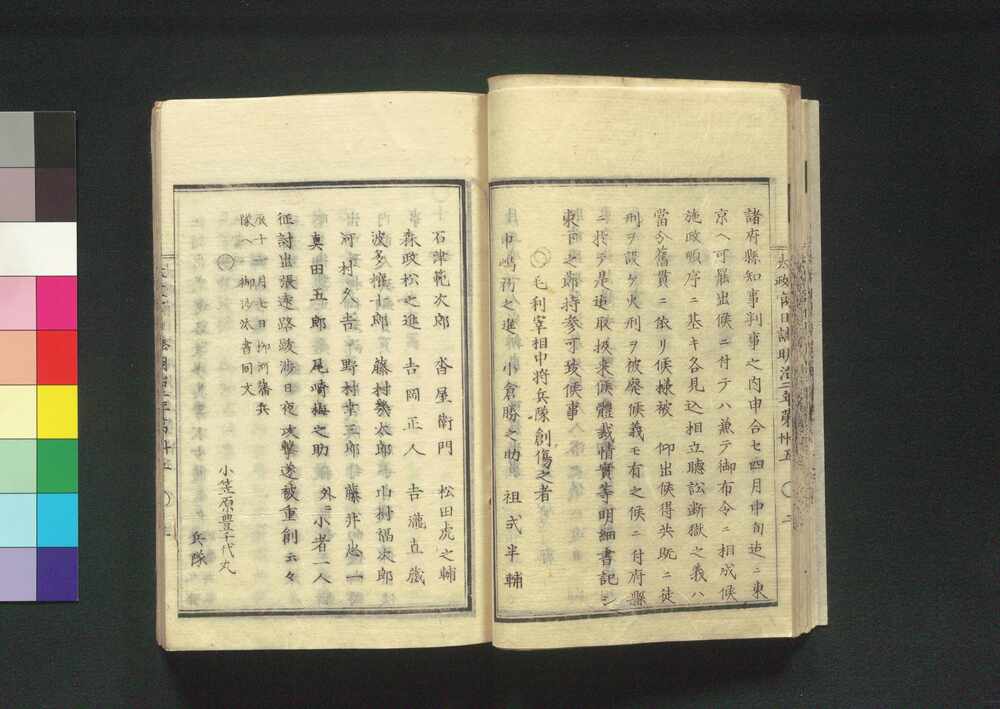 太政官日誌明治二年第卅五
二
諸府縣知事判事之内申合セ四月中旬迄ニ東
京ヘ可罷出候ニ付テハ兼テ御布令ニ相成候
施政順序ニ基キ各見込相立聴訟断獄之義ハ
當分舊貫ニ依リ候様被 仰出候得共既ニ徒
刑ヲ設ケ火刑ヲ被廃候義モ有之候ニ付府縣
ニ於テ是迄取扱来候體裁情實等明細書記シ
東下之節持参可致候事
〇毛利宰相中将兵隊創傷之者
中嶋衛之進 小倉勝之助 祖式半輔
石津範次郎 沓屋衛門 松田虎之輔
森政松之進 吉岡正人 吉瀧直蔵
波多惟十郎 藤村幾太郎 山村福次郎
河村久吉 野村幸三郎 藤井忠一
真田五郎 尾崎梅之助 外ニ小者一人
征討出張遠路跋渉日夜攻撃遂被重創云々
辰十一月七日柳河藩兵
隊ヘ御沙汰書同文
〇
小笠原豊千代丸
兵隊